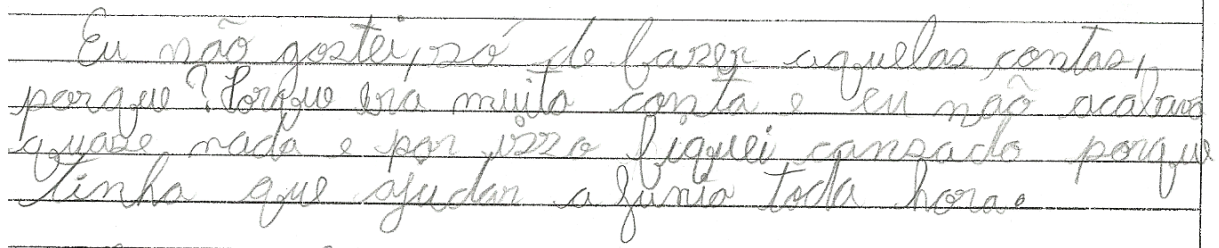 Eu não gostei, só de fazer aquelas contas,
porque? Porque era muita conta e eu não acabava
quase nada e por isso fiquei cansado porque
tinha que ajudar a Júnia toda hora.